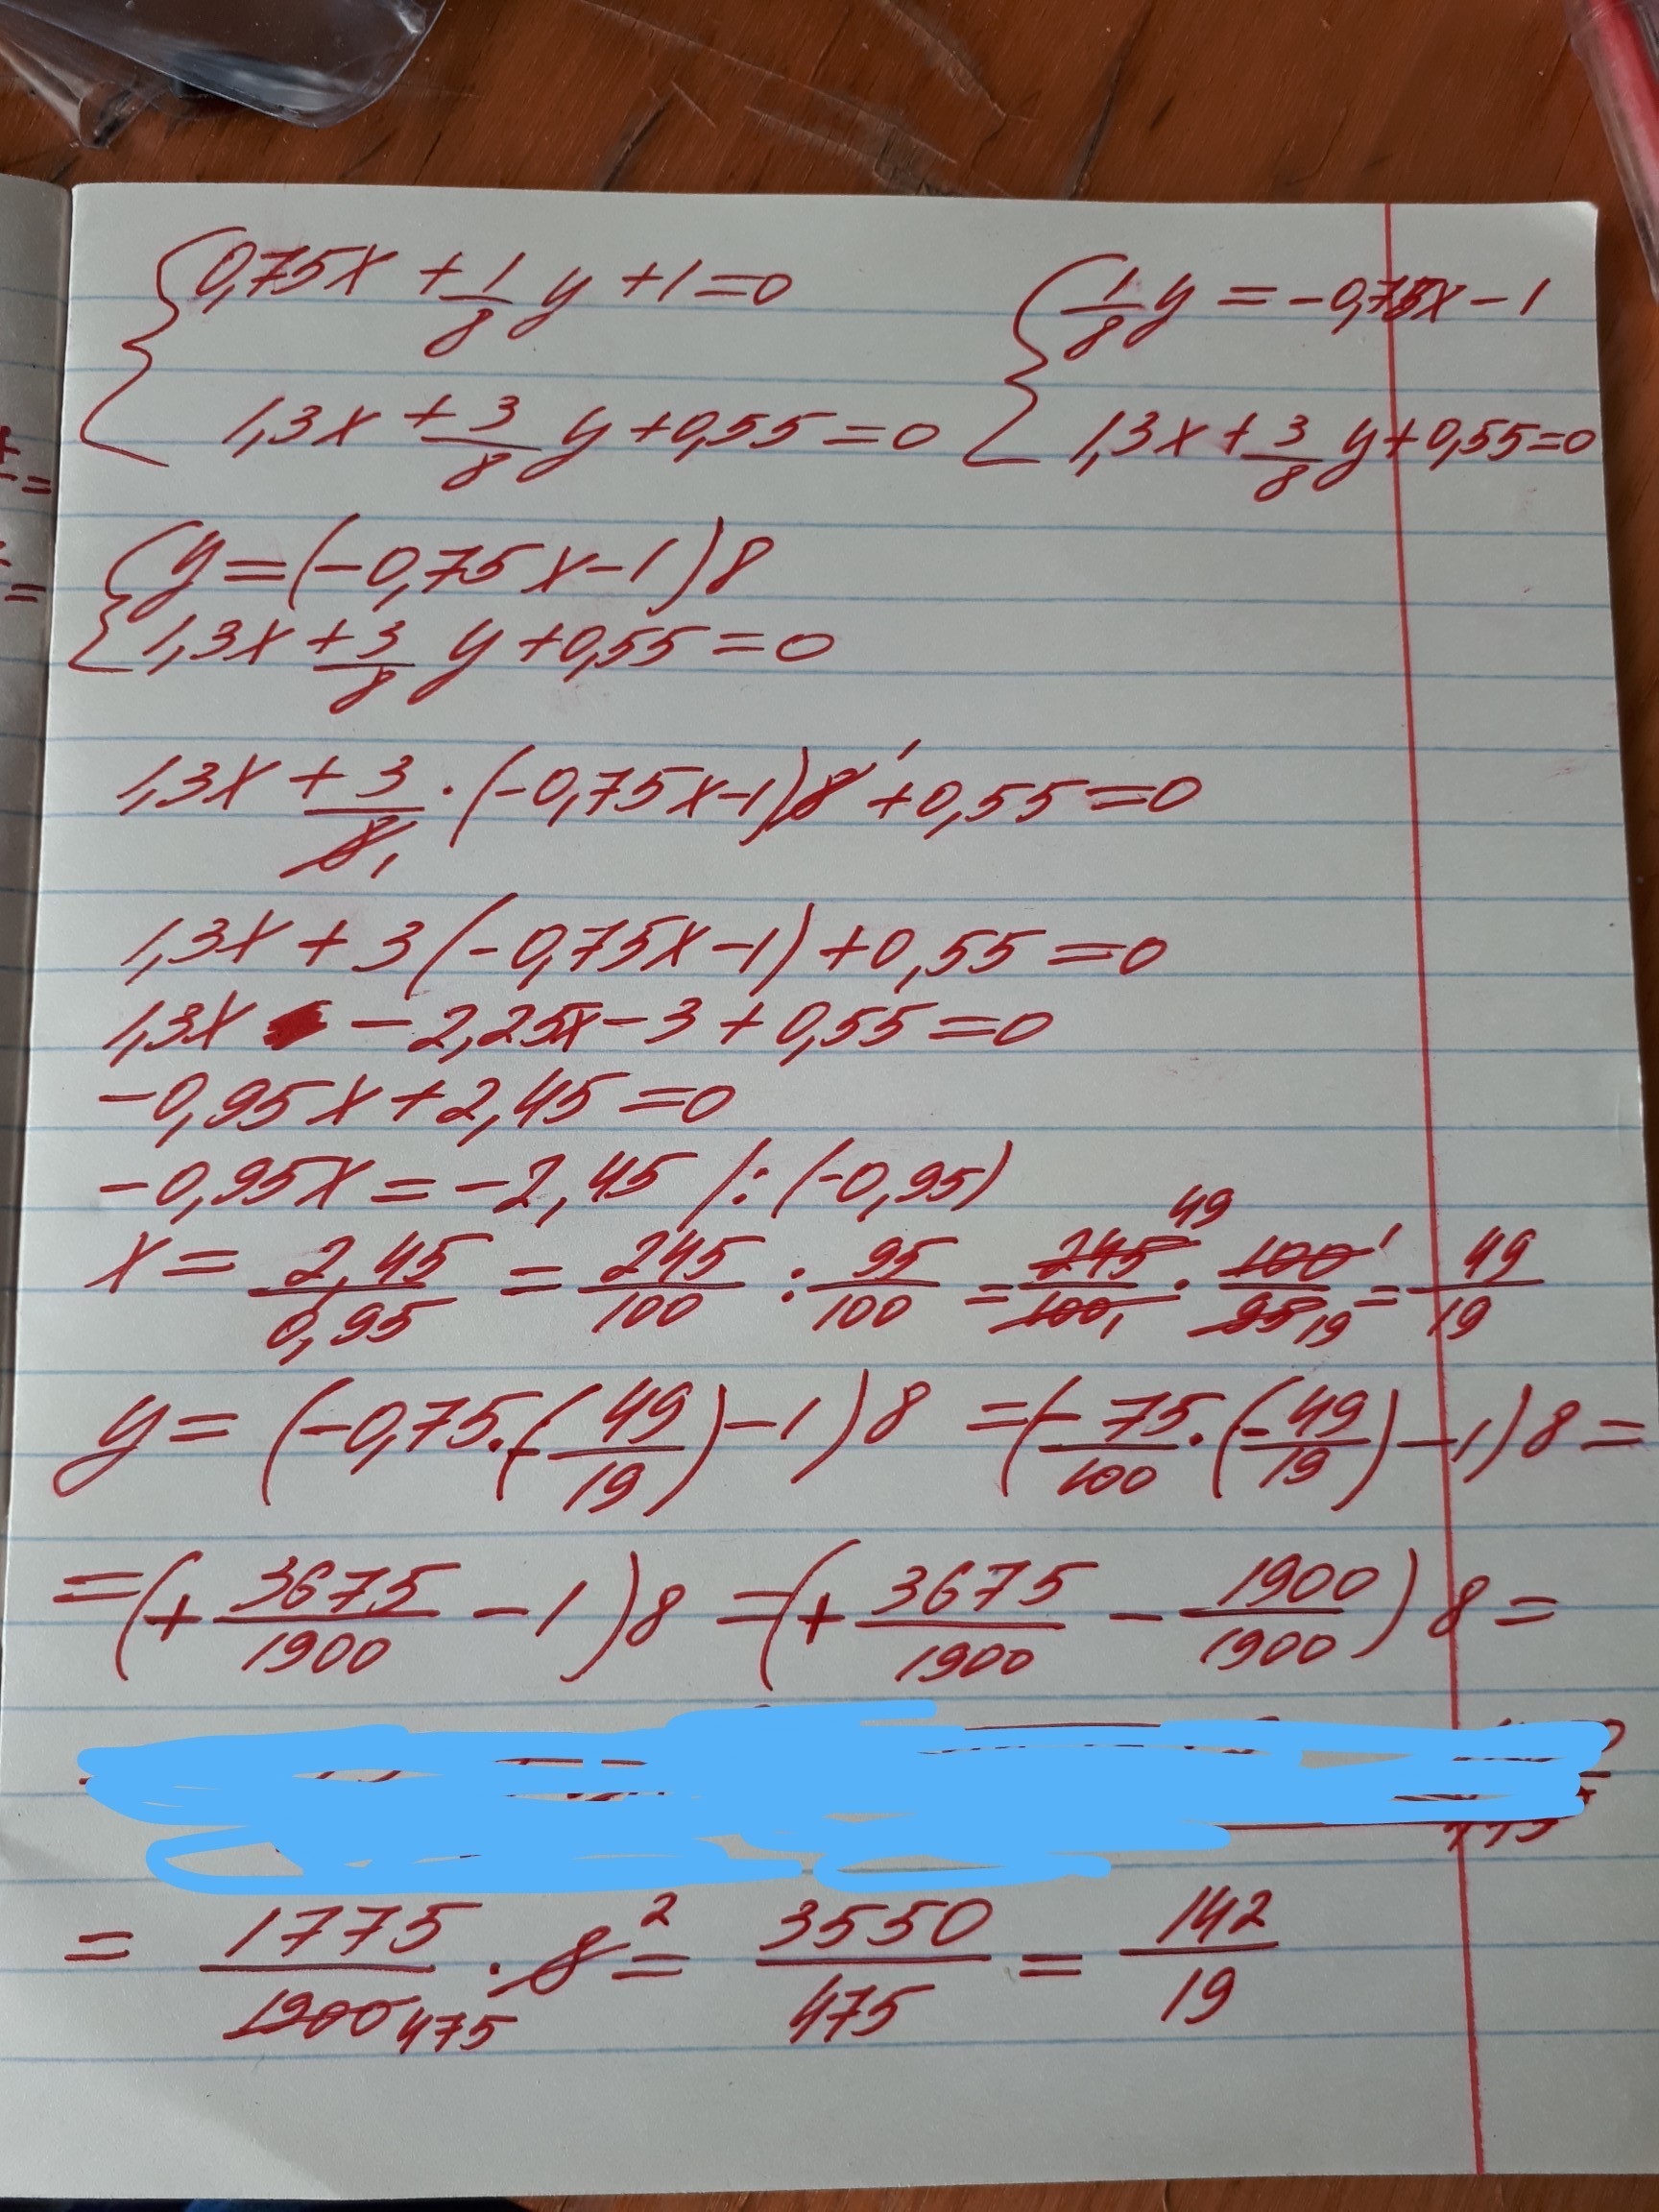 0,75x + 1/8 y + 1 = 0
1,3x + 3/8 y + 0,55 = 0
1/8 y = -0,75x - 1
1,3x + 3/8 y + 0,55 = 0
y = (-0,75x - 1) 8
1,3x + 3/8 y + 0,55 = 0
1,3x + 3/8 1 · (-0,75x - 1) 8 1 + 0,55 = 0
1,3x + 3 (-0,75x - 1) + 0,55 = 0
1,3x - 2,25x - 3 + 0,55 = 0
-0,95x + 2,45 = 0
-0,95x = -2,45 /: (-0,95)
x = 2,45/0,95 = 245/100 : 95/100 = 245 49/100 1 · 100 1/95 19 = 49/19
y = (-0,75 · (- 49/19) - 1) 8 = (- 75/100 · (- 49/19) - 1) 8 =
= (+ 3675/1900 - 1) 8 = (+ 3675/1900 - 1900/1900) 8 =
= 1775/1900 475 · 8 2 = 3550/475 = 142/19